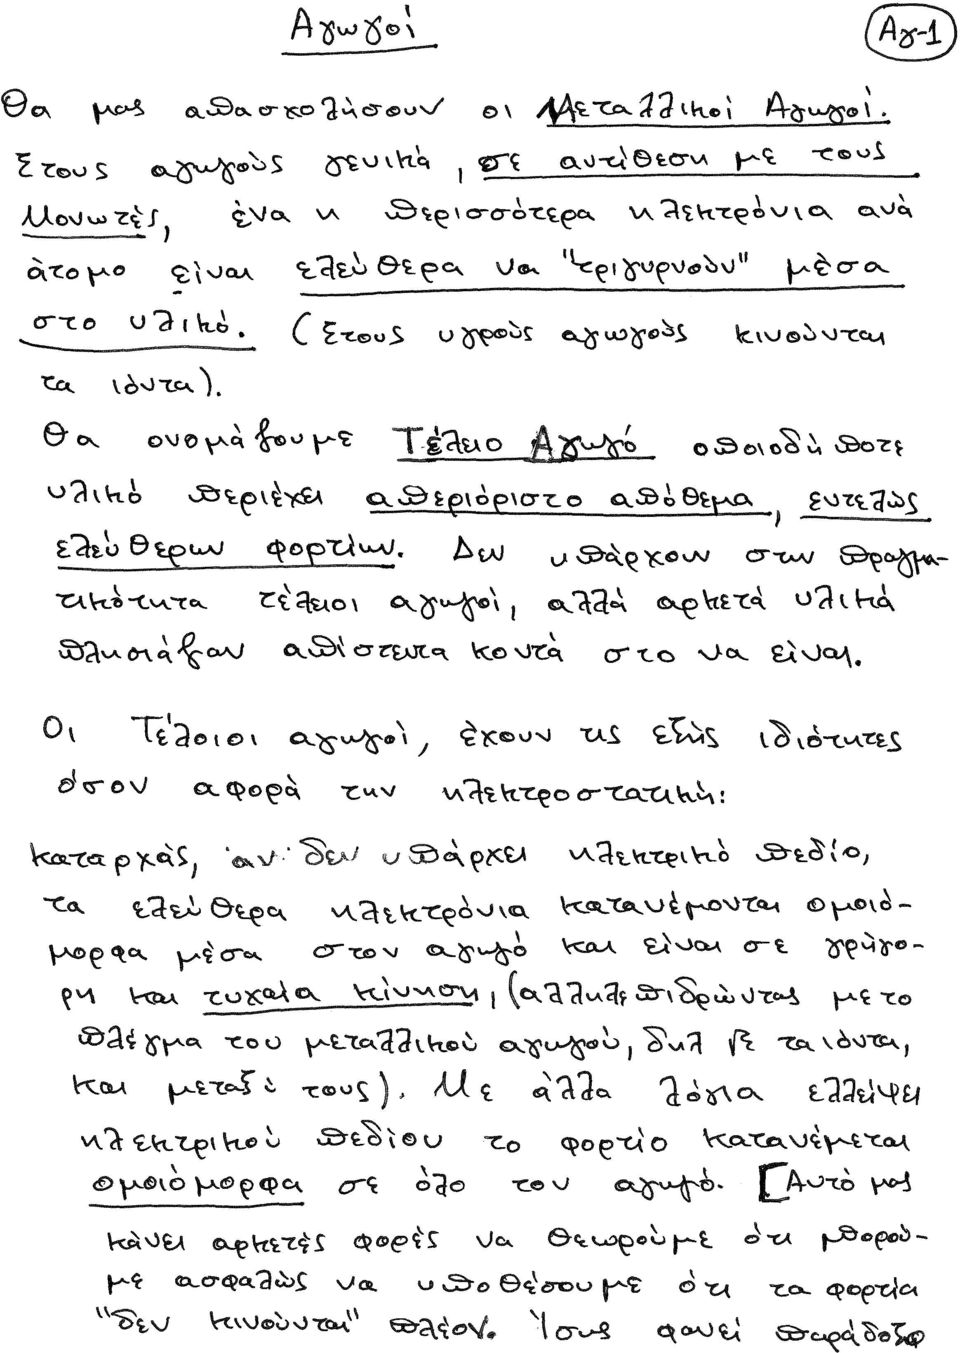 Αγωγοί
Αγ-1
Θα μας απασχολήσουν οι Μεταλλικοί Αγωγοί.
Στους αγωγούς γενικά, σε αντίθεση με τους
Μονωτές, ένα ή περισσότερα ηλεκτρόνια ανά
άτομο είναι ελεύθερα να "τριγυρνούν" μέσα
στο υλικό. (Στους υγρούς αγωγούς κινούνται
τα ιόντα).
Θα ονομάζουμε Τέλειο Αγωγό οποιοδήποτε
υλικό περιέχει απεριόριστο απόθεμα, εντελώς
ελεύθερων φορτίων. Δεν υπάρχουν στην πραγμα-
τικότητα τέλειοι αγωγοί, αλλά αρκετά υλικά
πλησιάζουν απίστευτα κοντά στο να είναι.
Οι Τέλοιοι αγωγοί, έχουν τις εξής ιδιότητες
όσον αφορά την ηλεκτροστατική:
καταρχάς, αν δεν υπάρχει ηλεκτρικό πεδίο,
τα ελεύθερα ηλεκτρόνια κατανέμονται ομοιό-
μορφα μέσα στον αγωγό και είναι σε γρήγο-
ρη και τυχαία κίνηση, (αλληλεπιδρώντας με το
πλέγμα του μεταλλικού αγωγού, δηλ με τα ιόντα,
και μεταξύ τους). Με άλλα λόγια ελλείψει
ηλεκτρικού πεδίου το φορτίο κατανέμεται
ομοιόμορφα σε όλο τον αγωγό. [Αυτό μας
κάνει αρκετές φορές να θεωρούμε ότι μπορού-
με ασφαλώς να υποθέσουμε ότι τα φορτία
"δεν κινούνται" πλέον. Ίσως φανεί παράδοξο